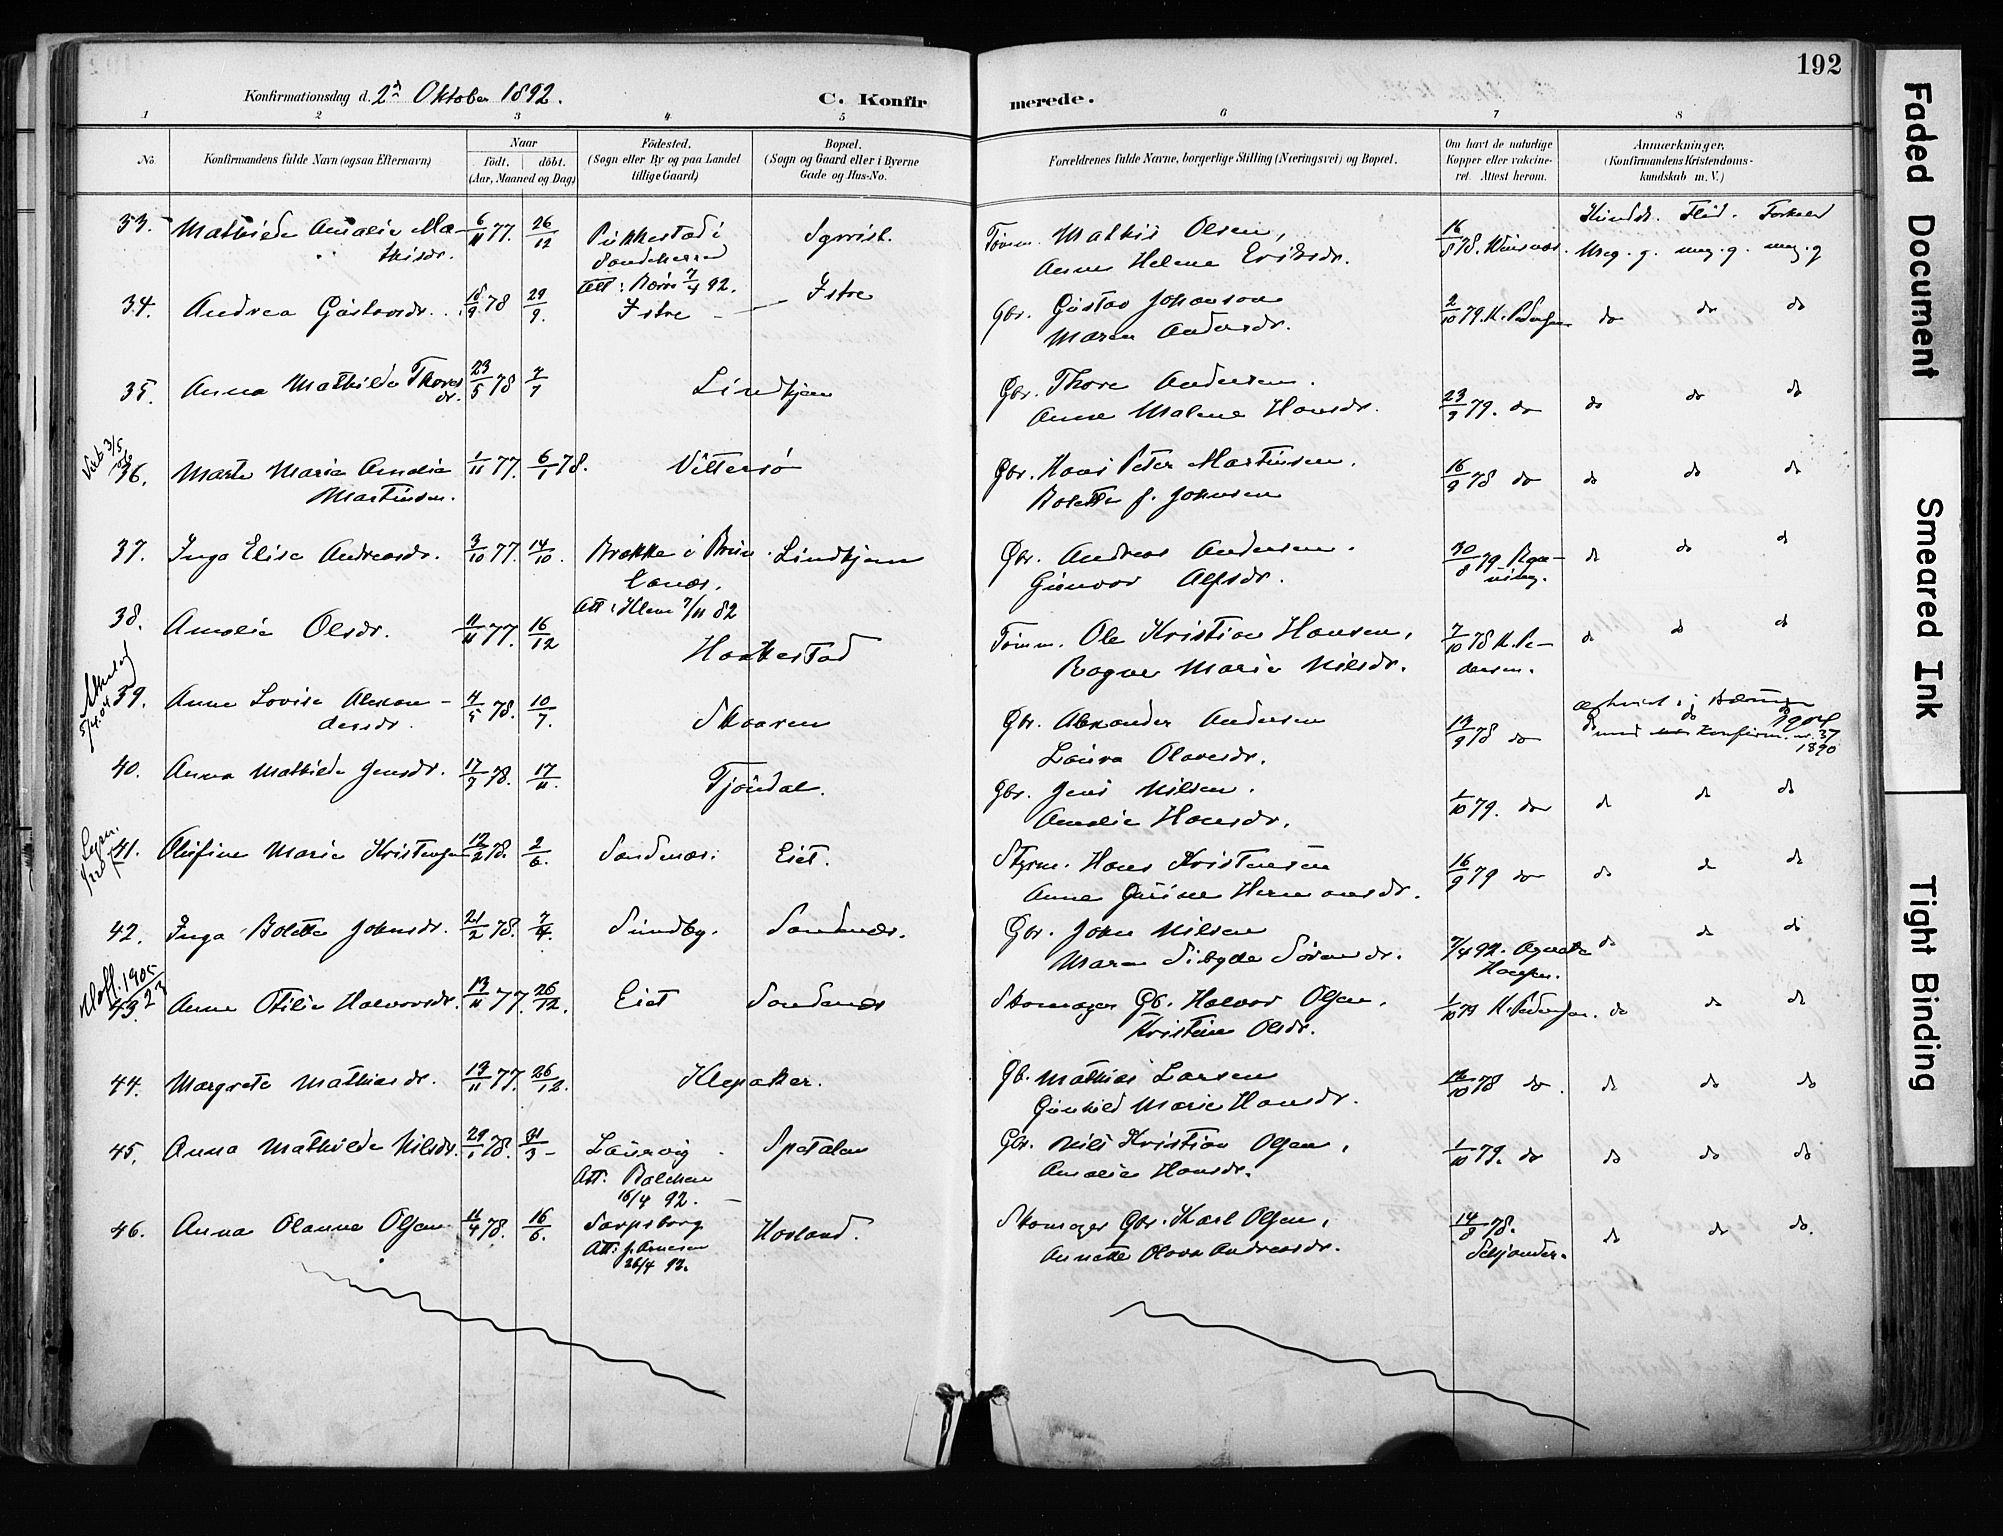 192
Konfirmationsdag d. 2den Oktober 1892.
C. Konfirmerede.
1 2 3 4 5 6 7 8
No.
Konfirmandens fulde Navn (ogsaa Efternavn)
Naar
født. døbt.
(Aar, Maaned og Dag)
Fødested.
(Sogn eller By og paa Landet
tillige Gaard)
Bopæl.
(Sogn og Gaard eller i Byerne
Gade og Hus-No.
Forældrenes fulde Navne, borgerlige Stilling (Næringsvei) og Bopæl.
Om havt de naturlige
Kopper eller vakcine-
ret. Attest herom.
Anmærkninger.
(Konfirmandens Kristendoms-
kundskab m. V.)
Kundsk. Flid. Forhold
33. Mathilde Amalie Ma- 6/11 77. 26/12 Pukkestad i
thisdr. Sandeherred
Tømm. Mathis Olsen, 16/8 78. Meg. g. meg. g. meg. g
Anne Helene Eriksdr.
34. Andrea Gustavsdr. 18/9 78 29/9. Istre Istre
Gbr. Gustav Johanson 2/10 79. K. Pedersen do do do
Maren Andersdr.
35. Anna Mathilde Thores 23/5 78 7/7 Lindhjem
dr.
Gbr. Thore Andersen. 23/9 79. do do do do
Anne Malene Hansdr.
36. Marte Maria Amalia 1/11 77. 6/1 78. Vittersø
Martinsen.
Gbr. Hans Peter Martinsen. 16/9 78 do do do do
Bolette J. Johnsen
37. Inga Elise Andreasdr. 3/10 77. 14/10. Brekke i Brun Lindhjem
lanæs.
Att: Klem 7/11 82
Gbr. Andreas Andersen. 30/8 79 do do do
Gunvor Alfsdr.
38. Amalie Olsdr. 11/11 77. 16/12 Haakestad
Tømm. Ole Kristian Hansen, 7/10 78 K. Pe-
Ragne Marie Nilsdr. dersen. do do do
39. Anne Lovise Alexan- 4/5 78. 10/7. Skaaren
dersdr.
5/4.04
Gbr. Alexander Andersen 19/9 78 do
Laura Olavesdr.
med Konfirm. nr. 37
1890
40. Anna Mathilde Jensdr. 17/9 78. 17/11. Tjöndal.
Gbr. Jens Nilsen. 1/10 79. do do do do
Amalie Hansdr.
41. Olufine Marie Kristensen 12/2 78. 2/6. Sandnæs. Eiet.
Styrm. Hans Kristensen 16/9 79 do do do do
Anne Gurine Hermansdr.
42. Inga Bolette Johnsdr. 21/2 78. 7/4. Sundby. Sandnæs.
Gbr. John Nilsen 7/4 92. Agnete
Maren Sibylle Sørensdr. Hansen. do do do
43. Anne Otilie Halvorsdr. 13/11 77. 26/12. Eiet Sandnæs
Skomager Gb. Halvor Olsen. 1/10 79 K. Pedersen. do do do
Kristine Olsdr.
44. Margrete Mathiasdr. 19/11 77. 26/12. Klepaker.
Gb. Mathias Larsen 16/10 78 do. do do do
Gunhild Marie Hansdr.
45. Anna Mathilde Nilsdr. 29/1 78. 31/3 Laurvig Spetalen
Att: Balchen
16/4 92.
Gbr. Nils Kristian Olsen, 1/10 79. do do do do
Amalie Hansdr.
46. Anna Olanna Olsen 11/4 78. 16/6. Sarpsborg Havland.
Att: J. Arnesen
26/4 92.
Skomager Gbr. Karl Olsen, 14/8 78.
Annette Olava Andreasdr. Schjander. do do do.
Faded Document
Smeared Ink
Tight Binding